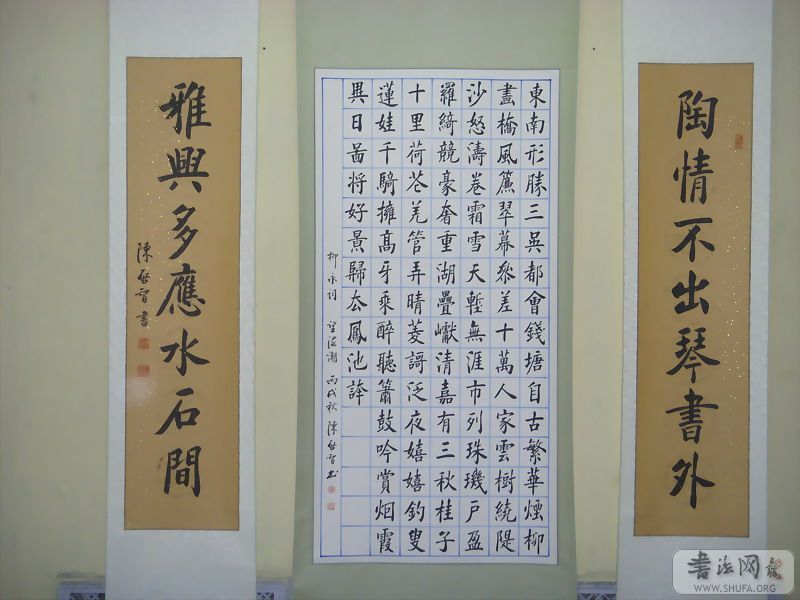 陶情不出琴書外
東南形勝三吳都會錢塘自古繁華煙柳
畫橋風簾翠幕參差十萬人家雲樹繞隄
沙怒濤卷霜雪天塹無涯市列珠璣戶盈
羅綺競豪奢重湖疊巘清嘉有三秋桂子
十里荷花羌管弄晴菱謌泛夜嬉嬉釣叟
蓮娃千騎擁高牙乘醉聽簫鼓吟賞烟霞
異日啚将好景歸去鳳池誇
柳永詞 望海潮 丙戌秋 陳啟智書
雅興多應水石間
陳啟智書
書法网
WWW.SHUFA.ORG